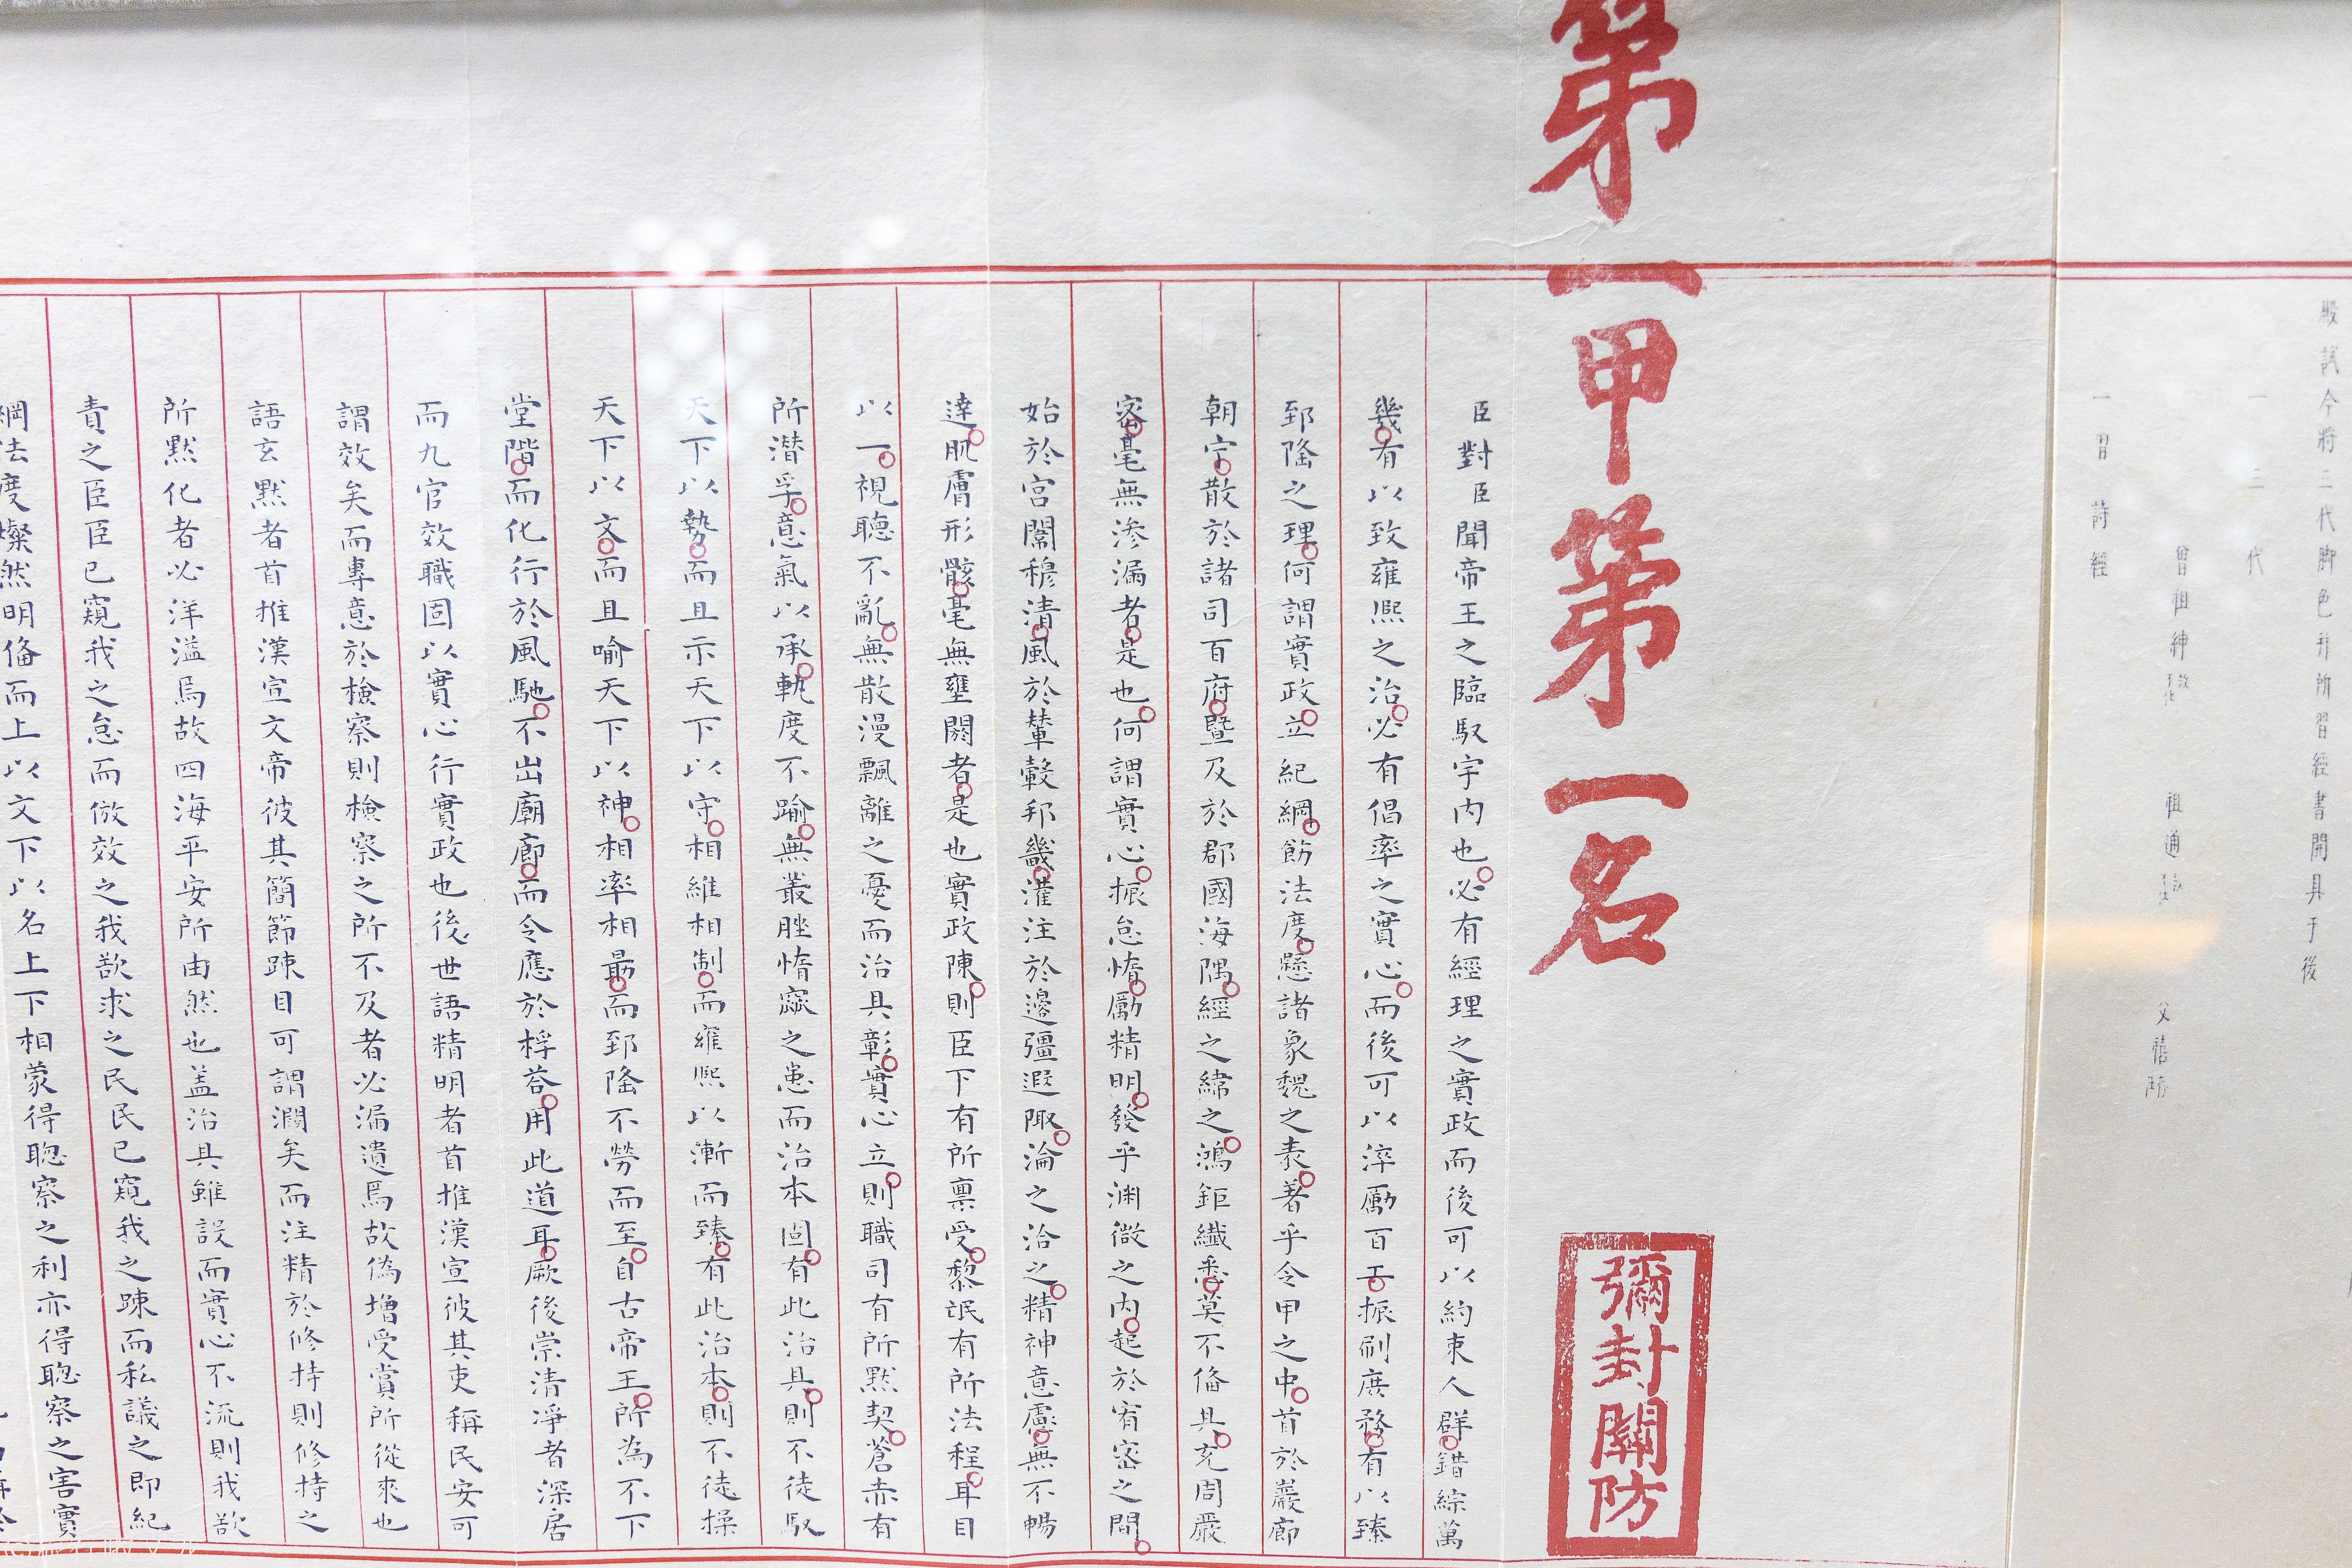 殿試今將三代脚色并所習經書開具于後
一三代
曾祖紳 祖通 父禧
一習詩經
第一甲第一名
彌封關防
臣對臣聞帝王之臨馭宇內也必有經理之實政而後可以約束人群錯綜萬
幾有以致雍熙之治必有倡率之實心而後可以淬勵百工振刷庶務有以臻
郅隆之理何謂實政立紀綱飭法度懸諸象魏之表著乎令甲之中首於巖廊
朝宁散於諸司百府暨及於郡國海隅經之緯之鴻鉅纖悉莫不俻具充周嚴
密毫無滲漏者是也何謂實心振怠惰勵精明發乎渊微之內起於宥密之間
始於宮闈穆清風於輦轂邦畿灌注於邊彊遐陬淪之洽之精神意慮無不暢
達肌膚形骸毫無壅閼者是也實政陳則臣下有所禀受黎氓有所法程耳目
以一視聽不亂無散漫飄離之憂而治具彰實心立則職司有所默契蒼赤有
所潜孚意氣以承軌度不踰無叢脞惰窳之患而治本固有此治具則不徒馭
天下以勢而且示天下以守相維相制而雍熙以漸而臻有此治本則不徒操
天下以文而且喻天下以神相率相勗而郅隆不勞而至自古帝王所為不下
堂階而化行於風馳不出廟廊而令應於桴荅用此道耳厥後崇清凈者深居
而九官效職固以實心行實政也後世語精明者首推漢宣彼其吏稱民安可
謂效矣而專意於檢察則檢察之所不及者必漏遺焉故偽增受賞所從來也
語玄默者首推漢宣文帝彼其簡節踈目可謂濶矣而注精於修持則修持之
所默化者必洋溢焉故四海平安所由然也盖治具雖設而實心不流則我欲
責之臣臣已窺我之怠而倣效之我欲求之民民已窺我之踈而私議之即紀
綱法度燦然明俻而上以文下以名上下相蒙得聰察之利亦得聰察之害實